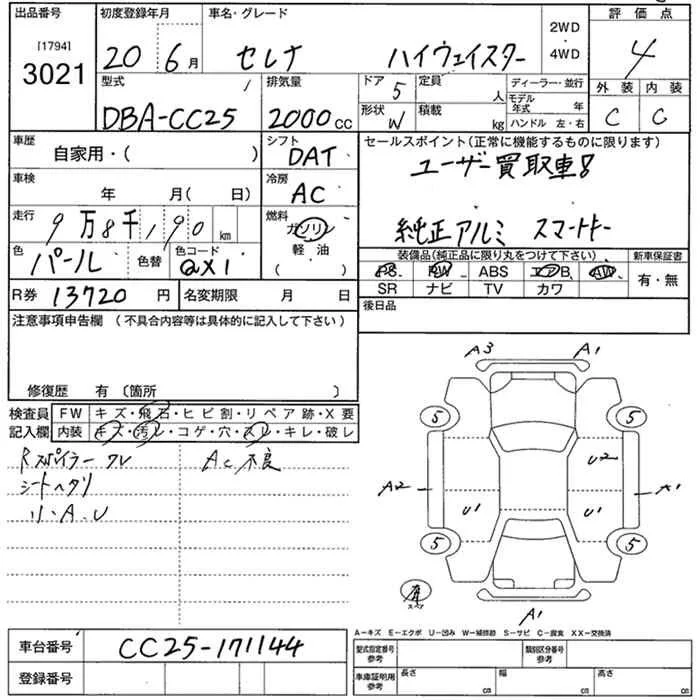 出品番号
[1794]
3021
初度登録年月
20 6月
車名・グレード
セレナ ハイウェイスター
2WD
・
4WD
評価点
4
外装 内装
C C
型式
DBA-CC25
排気量
2000cc
ドア 5
形状 W
定員 人
積載 kg
ディーラー・並行
モデル年式 年
ハンドル 左・右
車歴
自家用・( )
シフト
DAT
車検
年 月( 日)
冷房
AC
走行
9万8千190 km
燃料
ガソリン
・
軽・油
( )
色
パール
色替
色コード
QX1
R券 13720円
名変期限 月 日
セールスポイント(正常に機能するものに限ります)
ユーザー買取車
純正アルミ スマートキー
装備品(純正品に限り丸をつけて下さい)
PS PW ABS エアB AW
SR ナビ TV カワ
新車保証書
有・無
後日品
注意事項申告欄(不具合内容等は具体的に記入して下さい)
修復歴 有〔箇所 〕
検査員記入欄
FW キズ・飛石・ヒビ割・リペア跡・X要
内装 キズ・汚レ・コゲ・穴・スレ・キレ・破レ
Rスポイラーワレ AC不良
シートヘタリ
小A.U
A3 A1
5 5
U2
A2 A1
U1 U1
5 5
有
スペア
A1
A-キズ E-エクボ U-凹み W-補修跡 S-サビ C-腐食 XX-交換済
車台番号 CC25-171144
登録番号
型式指定番号
参考
類別区分番号
参考
車庫証明用
参考
長さ cm
幅 cm
高さ cm